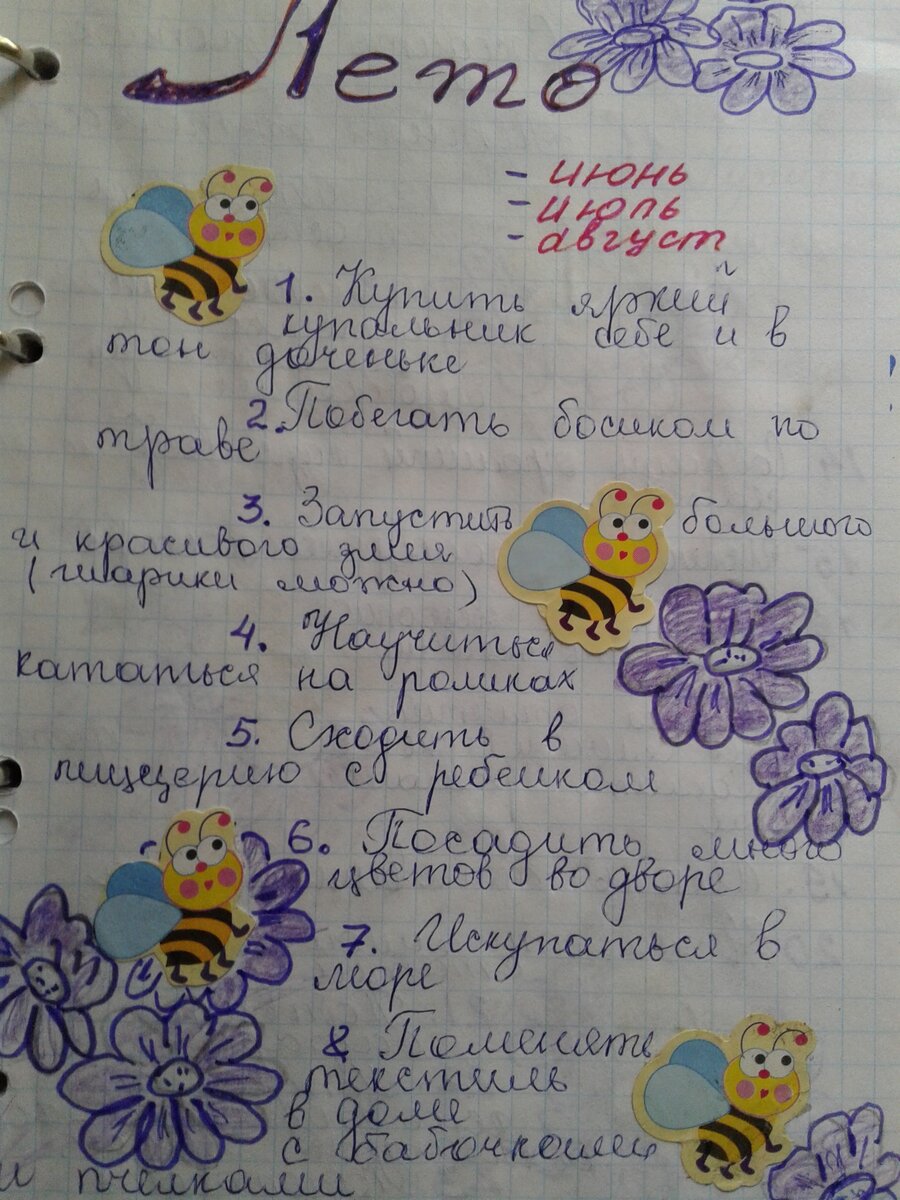 Лето
- июнь
- июль
- август
1. Купить яркий
купальник себе и в
тон доченьке
2. Побегать босиком по
траве
3. Запустить большого
и красивого змея
(шарики можно)
4. Научиться
кататься на роликах
5. Сходить в
пиццерию с ребенком
6. Посадить много
цветов во дворе
7. Искупаться в
море
8 Поменять
текстиль
в доме
с бабочками
и пчелками